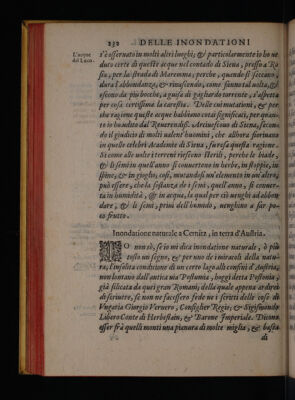 232 DELLE INONDATIONI
L'acque
del Luco.
s'è osseruato in molti altri luoghi; & particolarmente io ho ve
duto certe di queste acque nel contado di Siena, presso a
sia, per la strada di Maremma; perche, quando si seccano,
dura l'abbondanza; & rinascendo, come fiume tal uolta, &
escono da più bocche, a guisa di gagliardo torrente, s'aspetta
per cosa certissima la carestia. Delle cui mutationi, & per
che ragione queste acque habbiamo cosi significati, per quan
to io ho udito dal Reuerendiss. Arciuescouo di Siena, secon
do il giudicio di molti ualent'huomini, che allhora fioriuano
in quelle celebri Academie di Siena, fu resa questa ragione.
Si come alle uolte i terreni riescono sterili, perche le biade,
& li semi in quell'anno si conuertono in herbe, in stoppie, in
spine, & in gioglo; così, mutandosi un'elemento in un'altra,
può essere, che la sostanza de i semi, quell'anno, si conuer-
ta in humidità, & in acqua, la qual per ciò uenghi ad abbon
dare, & li semi, priui dell'humido, uenghino a far po-
co frutto.
Inondatione naturale a Cernitz, in terra d'Austria.
IO non sò, se io mi dica inondatione naturale, ò più
tosto un segno, & per uno de i miracoli della natu-
ra, l'insolita conditione di un certo lago alli confini d'Austria,
non lontano dall'antica uia
già silicata da quei gran Romani; della quale appena ardirei
di scriuere, se non ne facessero fede ne i scritti delle cose di
Vngaria Giorgio Vernero, Consiglier Regio; & Sigismondo
Libero Conte di Herbestain, & Barone Imperiale. Dicono
esser frà quelli monti una pianura di molte miglia, & basta
di